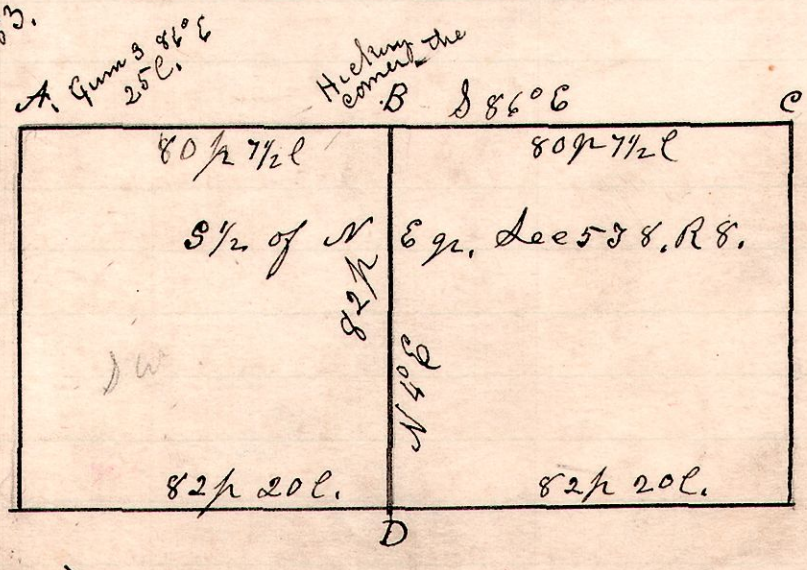 3.
A. Gum 3 86° E
25l.
Hickory
corner the
B S 86° E C
80p 7½l 80p 7½l
S½ of N E qr. Sec 5 T 8. R 8.
82p
N 4° E
S W
82p 20l. 82p 20l.
D